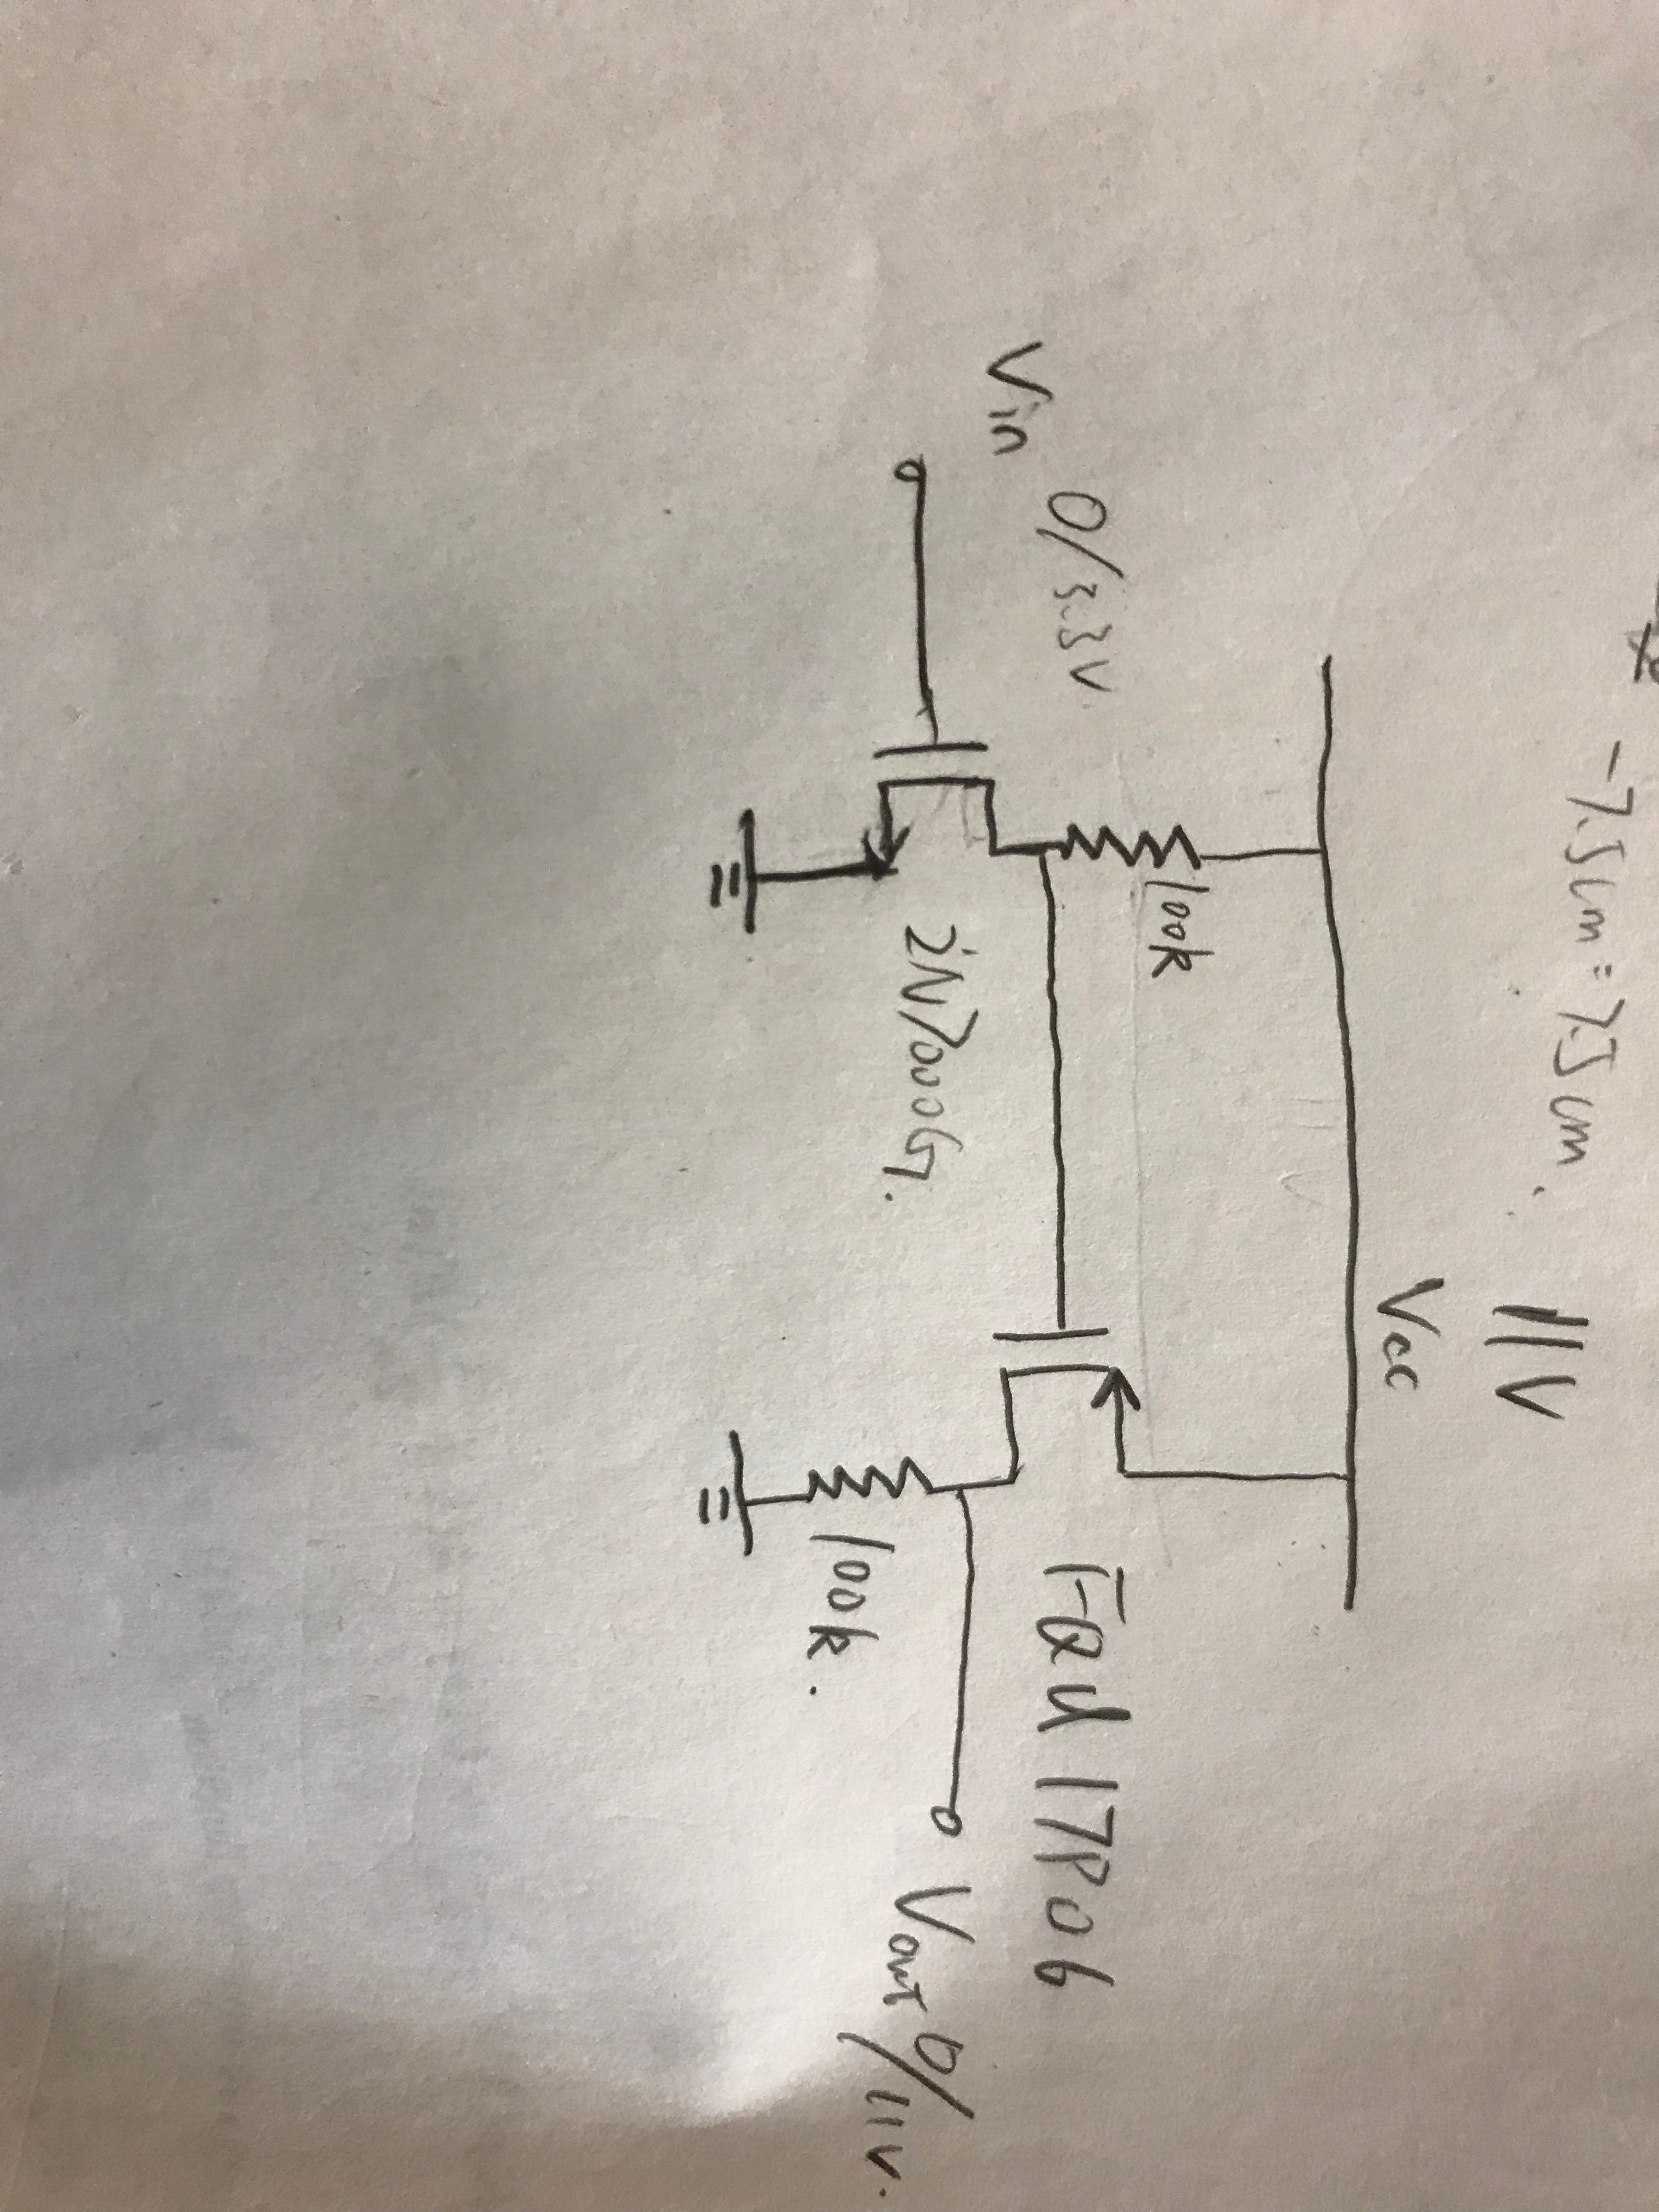 -7.5um = 7.5um.
11V
Vcc
100k
Vin 0/3.3V
2N7000G.
FQU17P06
100k.
Vout 0/11V.